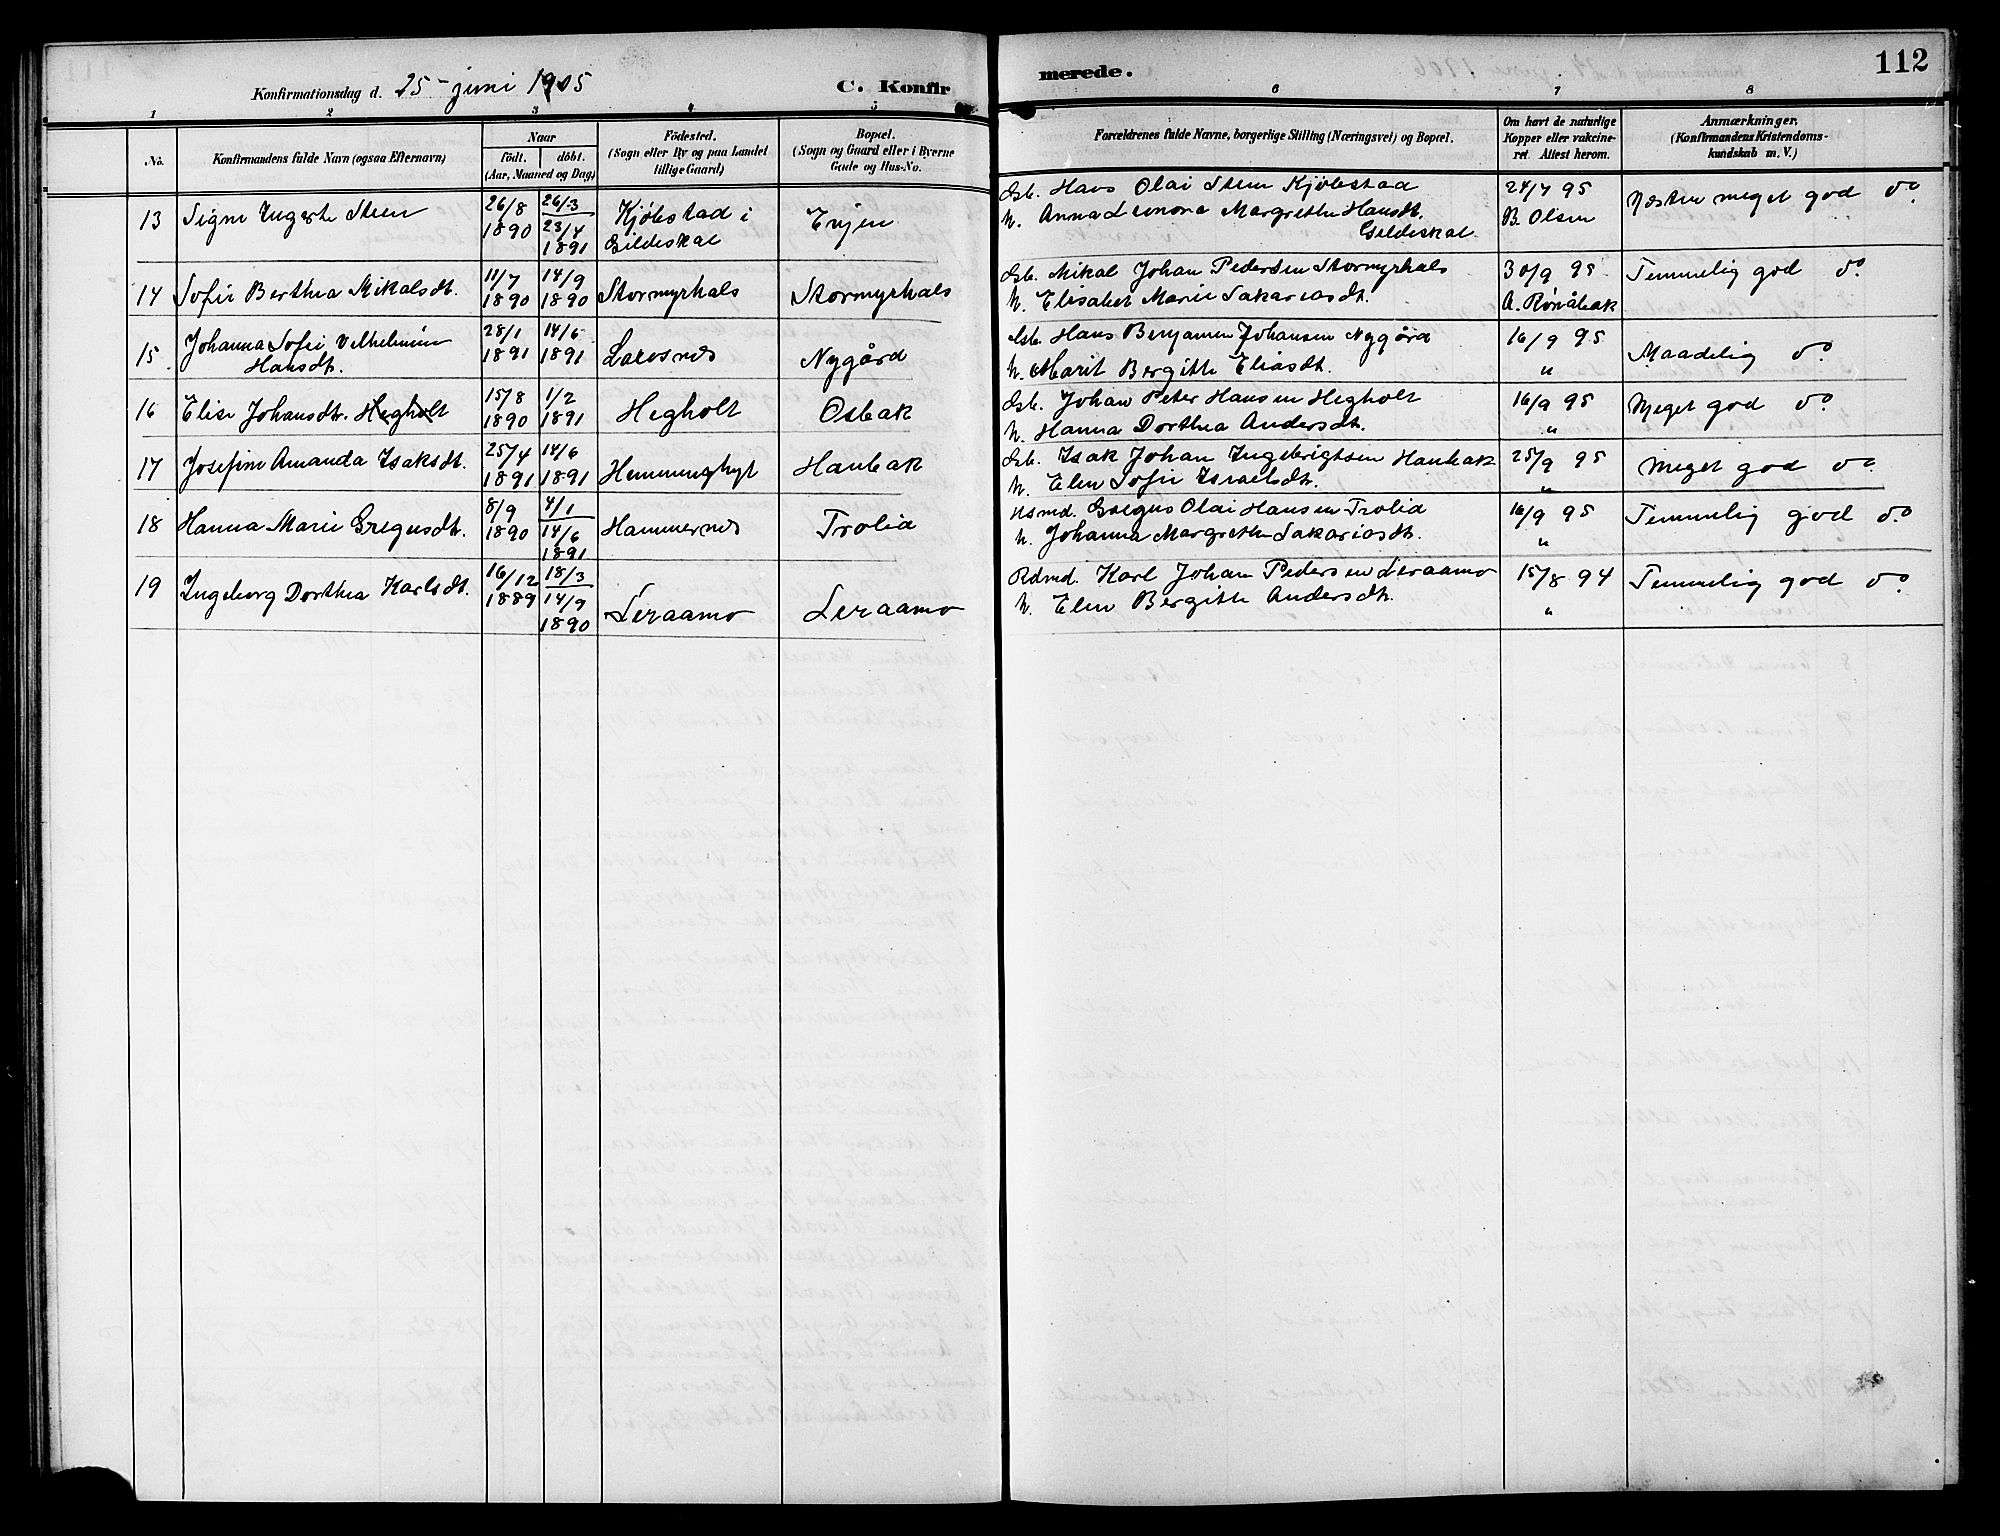 112
Konfirmationsdag d. 25 - juni 1905
C. Konfir
merede.
1 2 3 4 5 6 7 8
No.
Konfirmandens fulde Navn (ogsaa Efternavn)
Naar
født. døbt.
(Aar, Maaned og Dag)
Fødested.
(Sogn eller By og paa Landet
tillige Gaard)
Bopæl.
(Sogn og Gaard eller i Byerne
Gade og Hus-No.
Forældrenes fulde Navne, borgerlige Stilling (Næringsvei) og Bopæl.
Om havt de naturlige
Kopper eller vakcine-
ret. Attest herom.
Anmærkninger,
(Konfirmandens Kristendoms-
kundskab m. V.)
13 Signe Ingerte Steen 26/8 1890 26/3 23/4 1891 Kjøbstad i Gildeskal Evjen
Gb. Hans Olai Steen Kjøbstad
h. Anna Leonora Margrethe Hansdt. Gildeskal
24/7 95 B. Olsen Næsten meget god do
14 Sofie Berthea Mikalsdt. 11/7 1890 14/9 1890 Stormyrhals Stormyrhals
Gb. Mikal Johan Pedersen Stormyrhals
h. Elisabet Marie Sakariasdt.
30/9 95 A. Rønåbak Temmelig god do
15 Johanna Sofie Vilhelmine Hansdt. 28/1 1891 14/6 1891 Laxosnes Nygård
Gb. Hans Benjamin Johansen Nygård
h. Marit Bergitte Eliasdt.
16/9 95 " Maadelig do
16 Elise Johansdt. Hegholt 15/8 1890 1/2 1891 Hegholt Osbak
Gb. Johan Peter Hansen Hegholt
h. Hanna Dorthea Andersdt.
16/9 95 " Meget god do
17 Josefine Amanda Isaksdt. 25/4 1891 14/6 1891 Hemminghyt Haubak
Gb. Isak Johan Ingebrigtsen Haubak
h. Elen Sofie Israelsdt.
25/9 95 " Meget god do
18 Hanna Marie Gregusdt. 8/9 1890 4/1 14/6 1891 Hammernes Trolid
Hsmd. Gregus Olai Hansen Trolid
h. Johanna Margrethe Sakariasdt.
16/9 95 " Temmelig god do
19 Ingeborg Dorthea Karlsdt. 16/12 1889 18/3 14/9 1890 Leraamo Leraamo
Rdmd. Karl Johan Pedersen Leraamo
h. Elen Bergitte Andersdt.
15/8 94 " Temmelig god do